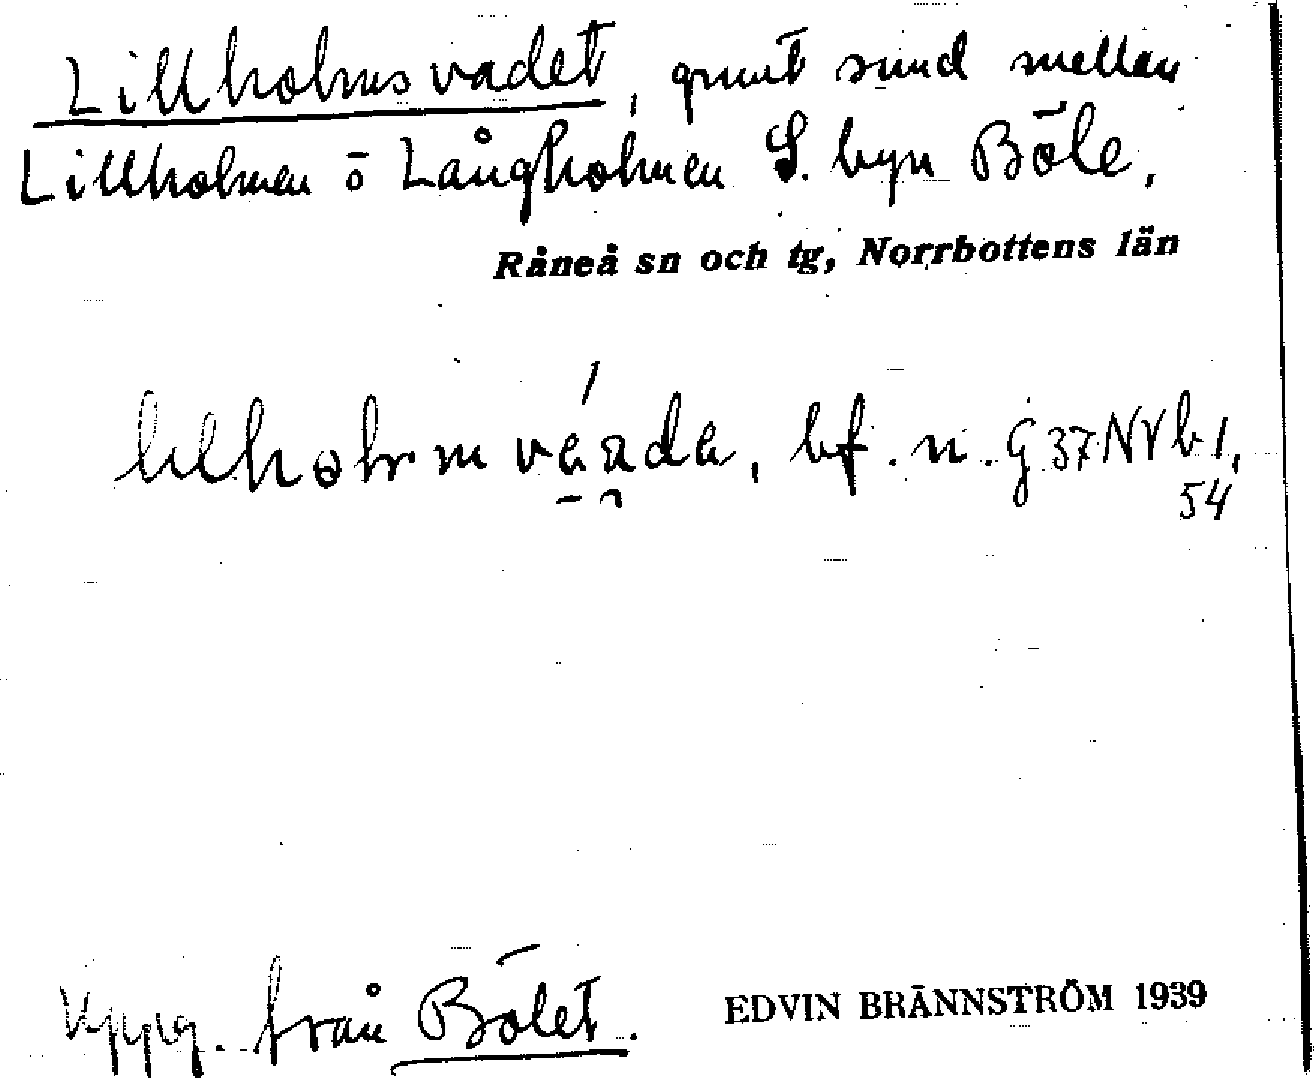 Lillholmsvadet, grunt sund mellan
Lillholmen ō Långholmen S. byn Böle,
Råneå sn och tg, Norrbottens län
bf. n. G 37 NVb 1,
54
Uppg. från Bölet.
EDVIN BRÄNNSTRÖM 1939